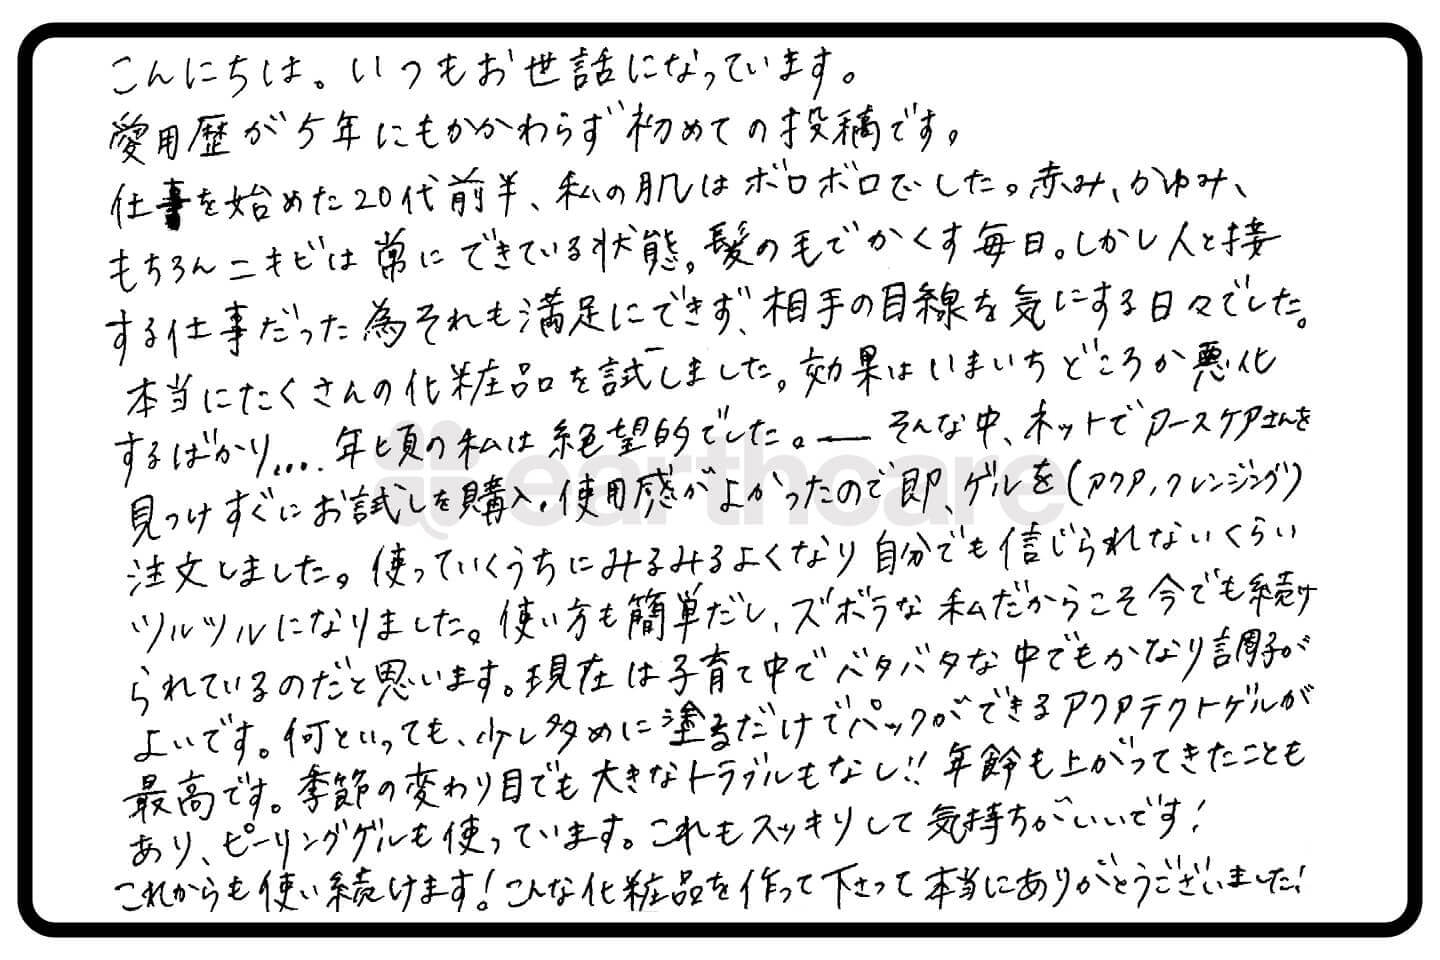 こんにちは。いつもお世話になっています。
愛用歴が5年にもかかわらず初めての投稿です。
仕事を始めた20代前半、私の肌はボロボロでした。赤み、かゆみ、
もちろんニキビは常にできている状態。髪の毛でかくす毎日。しかし人と接
する仕事だった為それも満足にできず、相手の目線を気にする日々でした。
本当にたくさんの化粧品を試しました。効果はいまいちどころか悪化
するばかり.... 年頃の私は絶望的でした。― そんな中、ネットでアースケアさんを
見つけすぐにお試しを購入。使用感がよかったので即、ゲルを(アクア,クレンジング)
注文しました。使っていくうちにみるみるよくなり自分でも信じられないくらい
ツルツルになりました。使い方も簡単だし、ズボラな私だからこそ今でも続け
られているのだと思います。現在は子育て中でバタバタな中でもかなり調子が
よいです。何といっても、少し多めに塗るだけでパックができるアクアテクトゲルが
最高です。季節の変わり目でも大きなトラブルもなし!! 年齢も上がってきたことも
あり、ピーリングゲルも使っています。これもスッキリして気持ちがいいです!
これからも使い続けます!こんな化粧品を作って下さって本当にありがとうございました!
earthcare